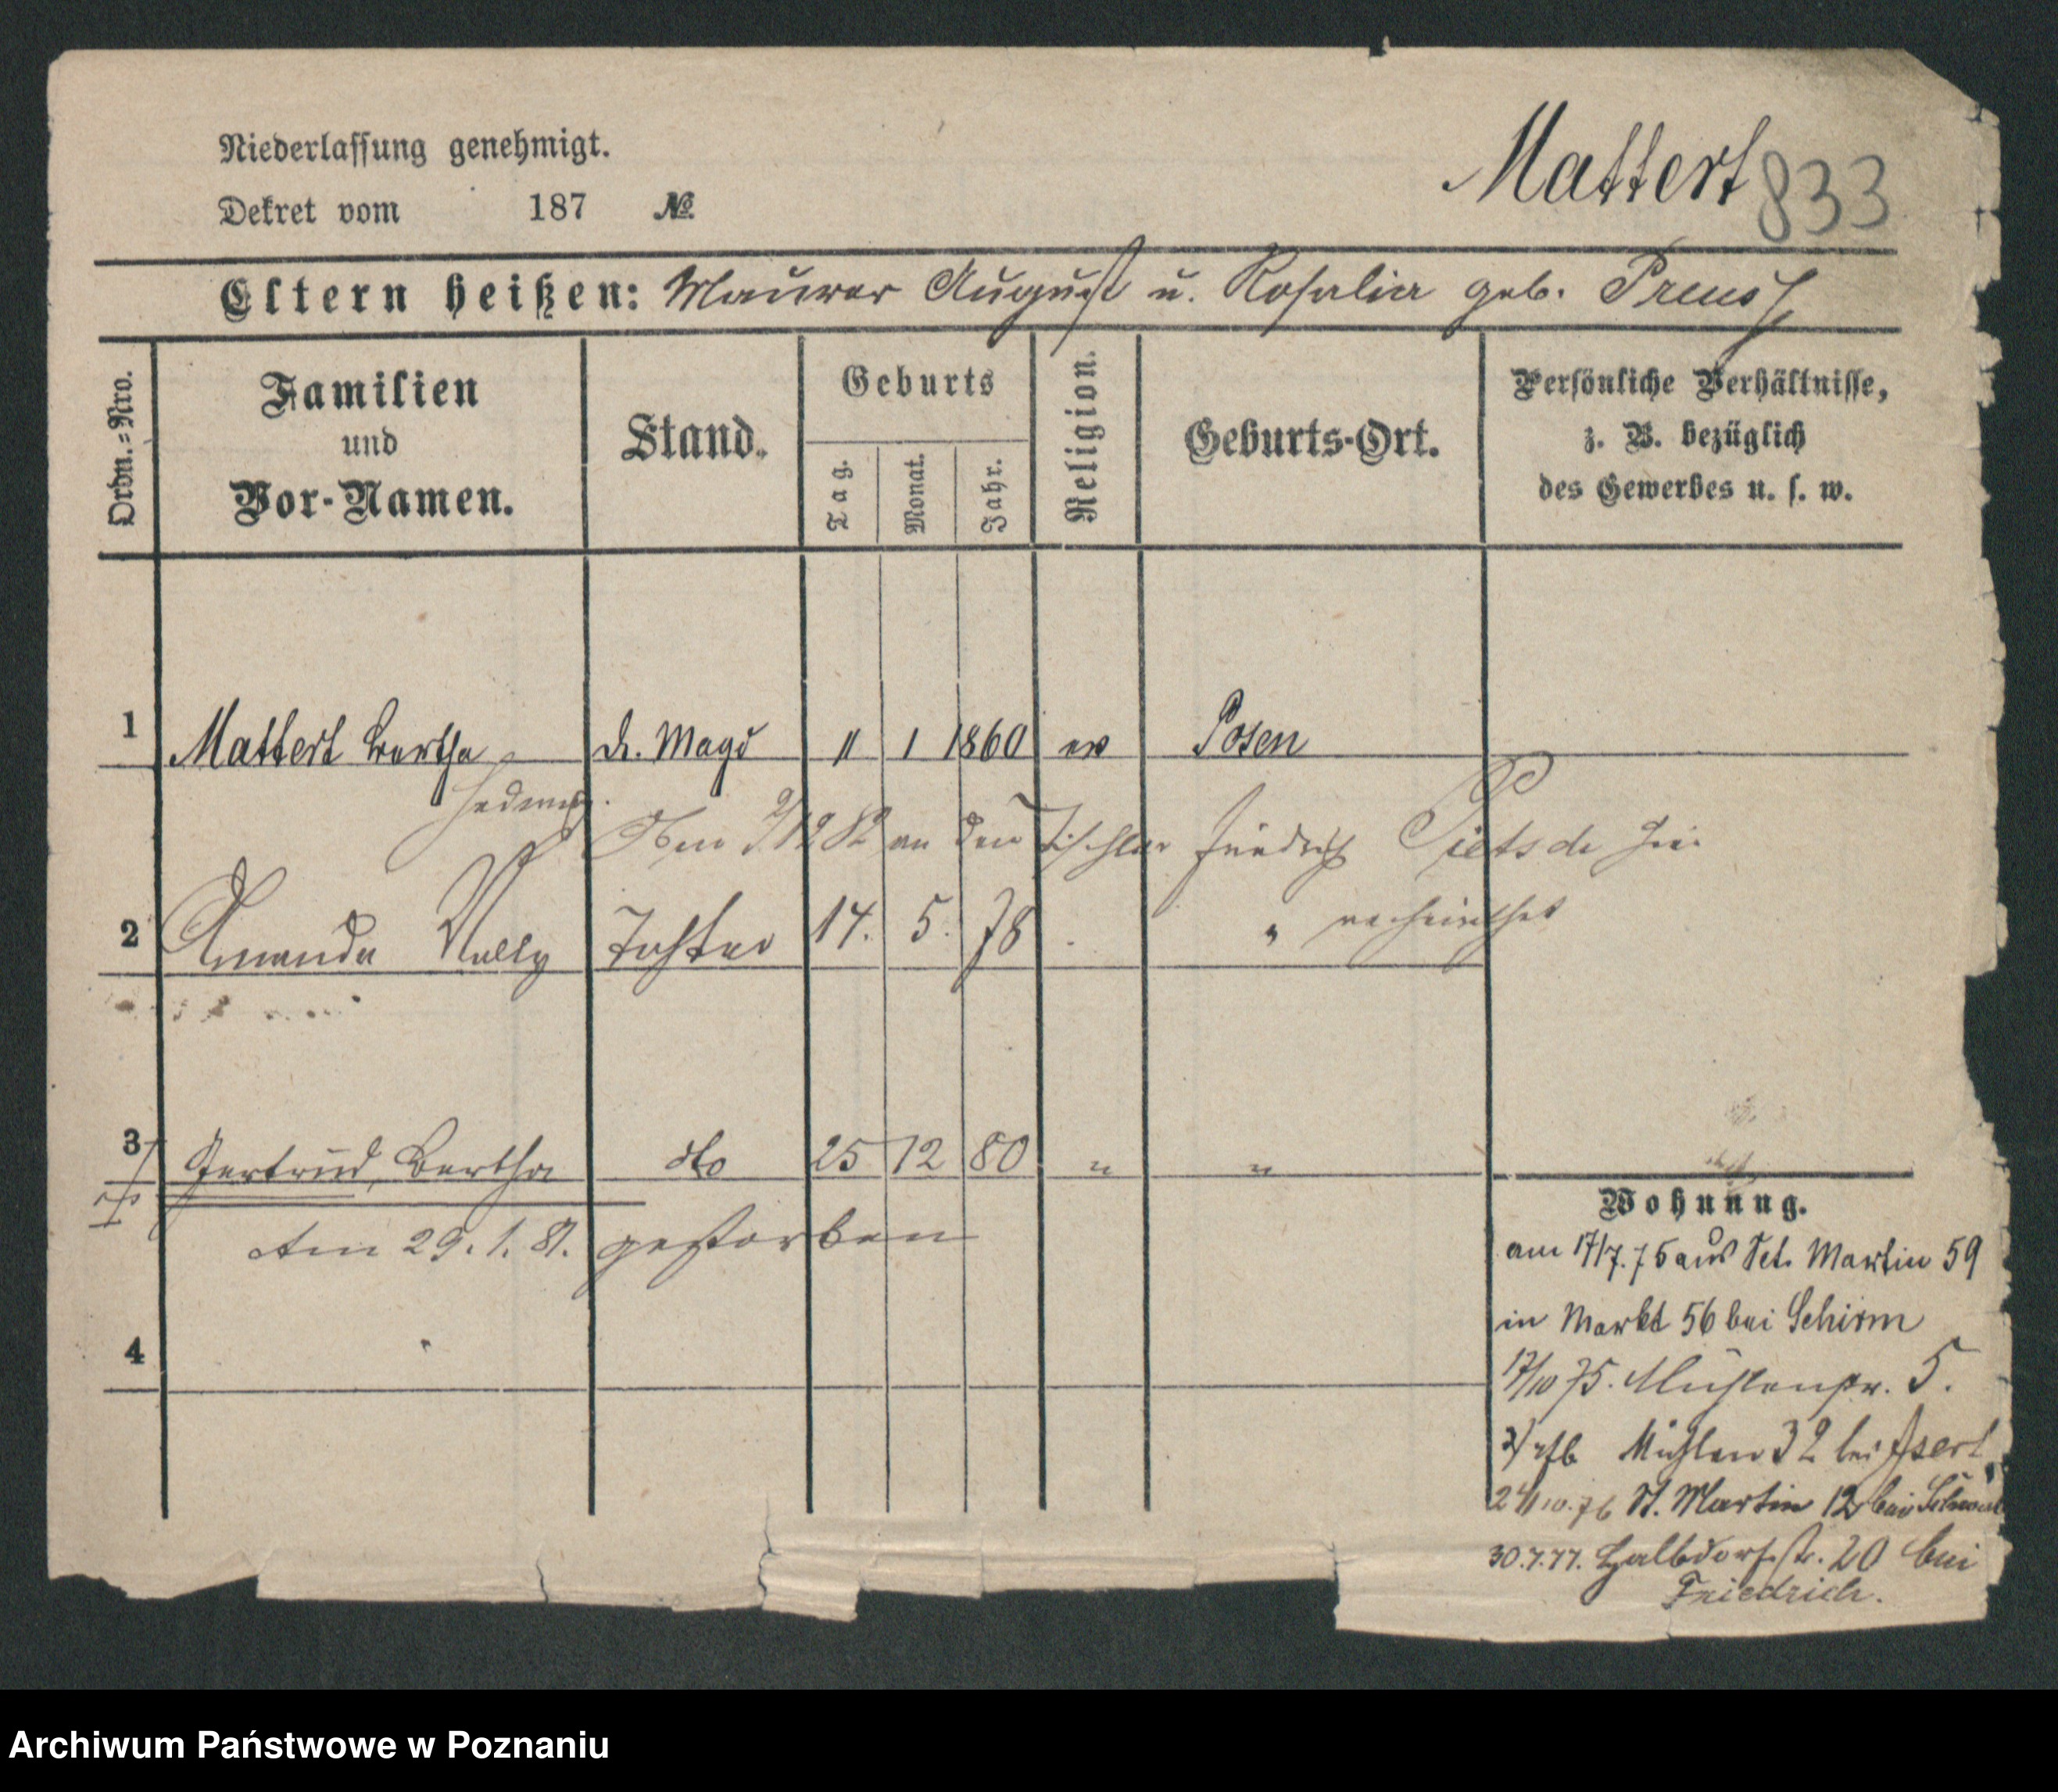 Niederlassung genehmigt.
Dekret vom 187 №
Mattert 833
Eltern heißen: Maurer August u. Rosalia geb. Preuss
Ordn.=Nro.
Familien
und
Vor-Namen.
Stand.
Geburts
Tag.
Monat.
Jahr.
Religion.
Geburts-Ort.
Persönliche Verhältnisse,
z. B. bezüglich
des Gewerbes u. s. w.
1 Mattert Bertha d. Magd 11 1 1860 ev Posen
Hedwig.
Am 9/12 82 an den Tischler Friedrich hier
verheirathet
2 Amanda Nelly Tochter 14. 5. 78 "
3 Gertrud, Bertha do 25 12 80 " "
Am 29.1.81. gestorben
4
Wohnung.
am 17/7.75 aus Sct. Martin 59
in Markt 56 bei Schirm
17/10 75. Mühlenstr. 5.
Mühlen 32 bei
24/10.76 St. Martin 12 bei
30.7.77. Halbdorfstr. 20 bei
Friedrich.
Archiwum Państwowe w Poznaniu